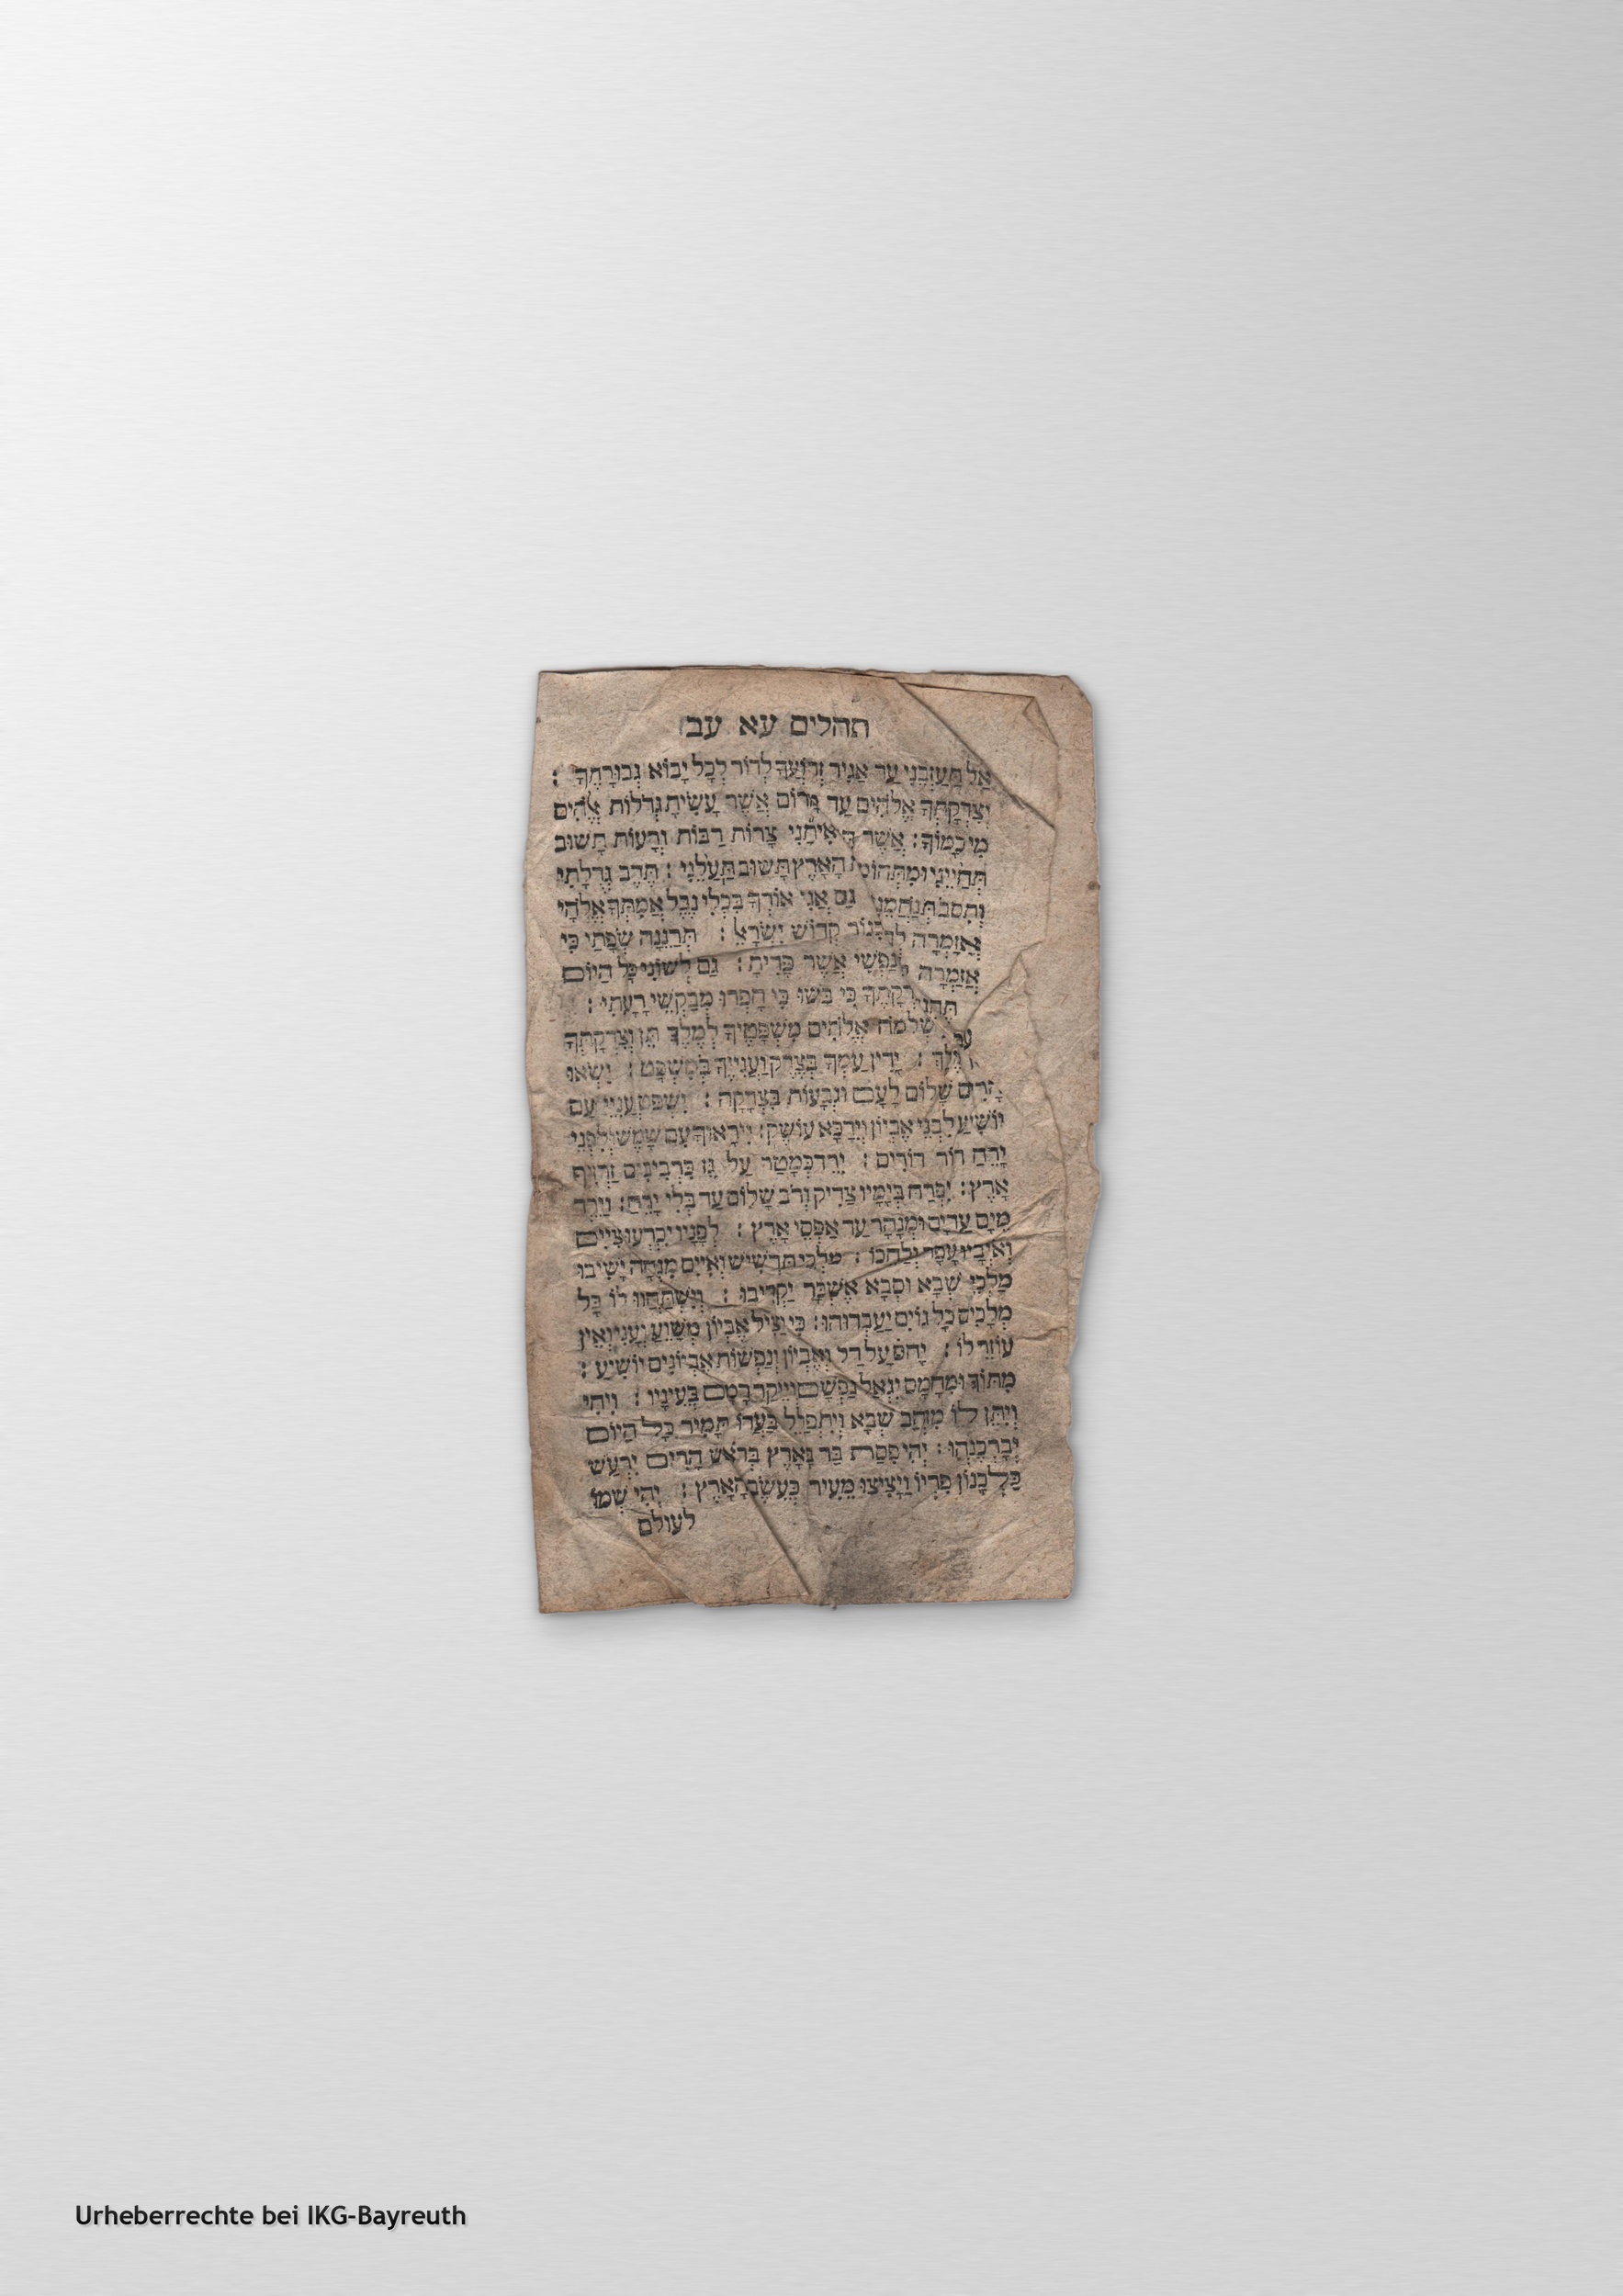 תהלים עא עב
אַל תַּעַזְבֵנִי עַד אַגִּיד זְרוֹעֲךָ לְדוֹר לְכָל יָבוֹא גְּבוּרָתֶךָ :
וְצִדְקָתְךָ אֱלֹהִים עַד מָרוֹם אֲשֶׁר עָשִׂיתָ גְדֹלוֹת אֱלֹהִים
מִי כָמוֹךָ : אֲשֶׁר צָרוֹת רַבּוֹת וְרָעוֹת תָּשׁוּב
תְּחַיֵּינִי וּמִתְּהוֹמוֹת הָאָרֶץ תָּשׁוּב תַּעֲלֵנִי : תֶּרֶב גְּדֻלָּתִי
וְתִסֹּב תְּנַחֲמֵנִי גַּם אֲנִי אוֹדְךָ בִכְלִי נֶבֶל אֲמִתְּךָ אֱלֹהָי
אֲזַמְּרָה לְךָ בְכִנּוֹר קְדוֹשׁ יִשְׂרָאֵל : תְּרַנֵּנָּה שְׂפָתַי כִּי
אֲזַמְּרָה וְנַפְשִׁי אֲשֶׁר פָּדִיתָ : גַּם לְשׁוֹנִי כָּל הַיּוֹם
תֶּהְגֶּה כִּי בֹשׁוּ כִי חָפְרוּ מְבַקְשֵׁי רָעָתִי :
עב שְׁלֹמֹה אֱלֹהִים מִשְׁפָּטֶיךָ לְמֶלֶךְ תֵּן וְצִדְקָתְךָ
מֶלֶךְ : יָדִין עַמְּךָ בְצֶדֶק וַעֲנִיֶּיךָ בְמִשְׁפָּט : יִשְׂאוּ
הָרִים שָׁלוֹם לָעָם וּגְבָעוֹת בִּצְדָקָה : יִשְׁפֹּט עֲנִיֵּי עָם
יוֹשִׁיעַ לִבְנֵי אֶבְיוֹן וִידַכֵּא עוֹשֵׁק : יִירָאוּךָ עִם שָׁמֶשׁ וְלִפְנֵי
יָרֵחַ דּוֹר דּוֹרִים : יֵרֵד כְּמָטָר עַל גֵּז כִּרְבִיבִים זַרְזִיף
אָרֶץ : יִפְרַח בְּיָמָיו צַדִּיק וְרֹב שָׁלוֹם עַד בְּלִי יָרֵחַ : וְיֵרְדְּ
מִיָּם עַד יָם וּמִנָּהָר עַד אַפְסֵי אָרֶץ : לְפָנָיו יִכְרְעוּ צִיִּים
וְאֹיְבָיו עָפָר יְלַחֵכוּ : מַלְכֵי תַרְשִׁישׁ וְאִיִּים מִנְחָה יָשִׁיבוּ
מַלְכֵי שְׁבָא וּסְבָא אֶשְׁכָּר יַקְרִיבוּ : וְיִשְׁתַּחֲווּ לוֹ כָל
מְלָכִים כָּל גּוֹיִם יַעַבְדוּהוּ : כִּי יַצִּיל אֶבְיוֹן מְשַׁוֵּעַ וְעָנִי וְאֵין
עוֹזֵר לוֹ : יָחֹס עַל דַּל וְאֶבְיוֹן וְנַפְשׁוֹת אֶבְיוֹנִים יוֹשִׁיעַ :
מִתּוֹךְ וּמֵחָמָס יִגְאַל נַפְשָׁם וְיֵיקַר דָּמָם בְּעֵינָיו : וִיחִי
וְיִתֶּן לוֹ מִזְּהַב שְׁבָא וְיִתְפַּלֵּל בַּעֲדוֹ תָמִיד כָּל הַיּוֹם
יְבָרְכֶנְהוּ : יְהִי פִסַּת בַּר בָּאָרֶץ בְּרֹאשׁ הָרִים יִרְעַשׁ
כַּלְּבָנוֹן פִּרְיוֹ וְיָצִיצוּ מֵעִיר כְּעֵשֶׂב הָאָרֶץ : יְהִי שְׁמוֹ
לעולם
Urheberrechte bei IKG-Bayreuth